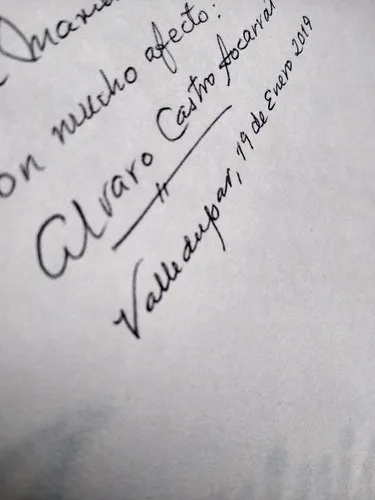 on mucho afecto:
Alvaro Castro Socarrás
Valledupar, 19 de Enero 2019